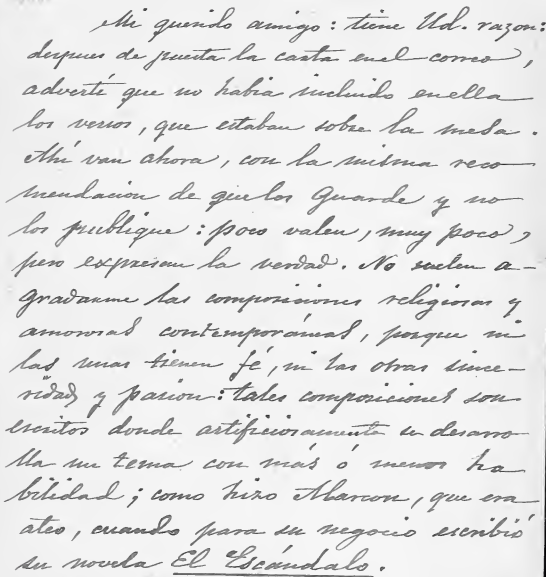 Mi querido amigo: tiene Ud. razon:
despues de puesta la carta en el correo,
advertí que no habia incluido en ella
los versos, que estaban sobre la mesa.
Ahí van ahora, con la misma reco
mendacion de que los guarde y no
los publique: poco valen, muy poco,
pero expresan la verdad. No suelen a-
gradarme las composiciones religiosas y
amorosas contemporáneas, porque ni
las unas tienen fé, ni las otras since-
ridad y pasion: tales composiciones son
escritos donde artificiosamente se desarro
lla un tema con más ó menos ha
bilidad; como hizo Alarcon, que era
ateo, cuando para su negocio escribió
su novela El Escándalo.